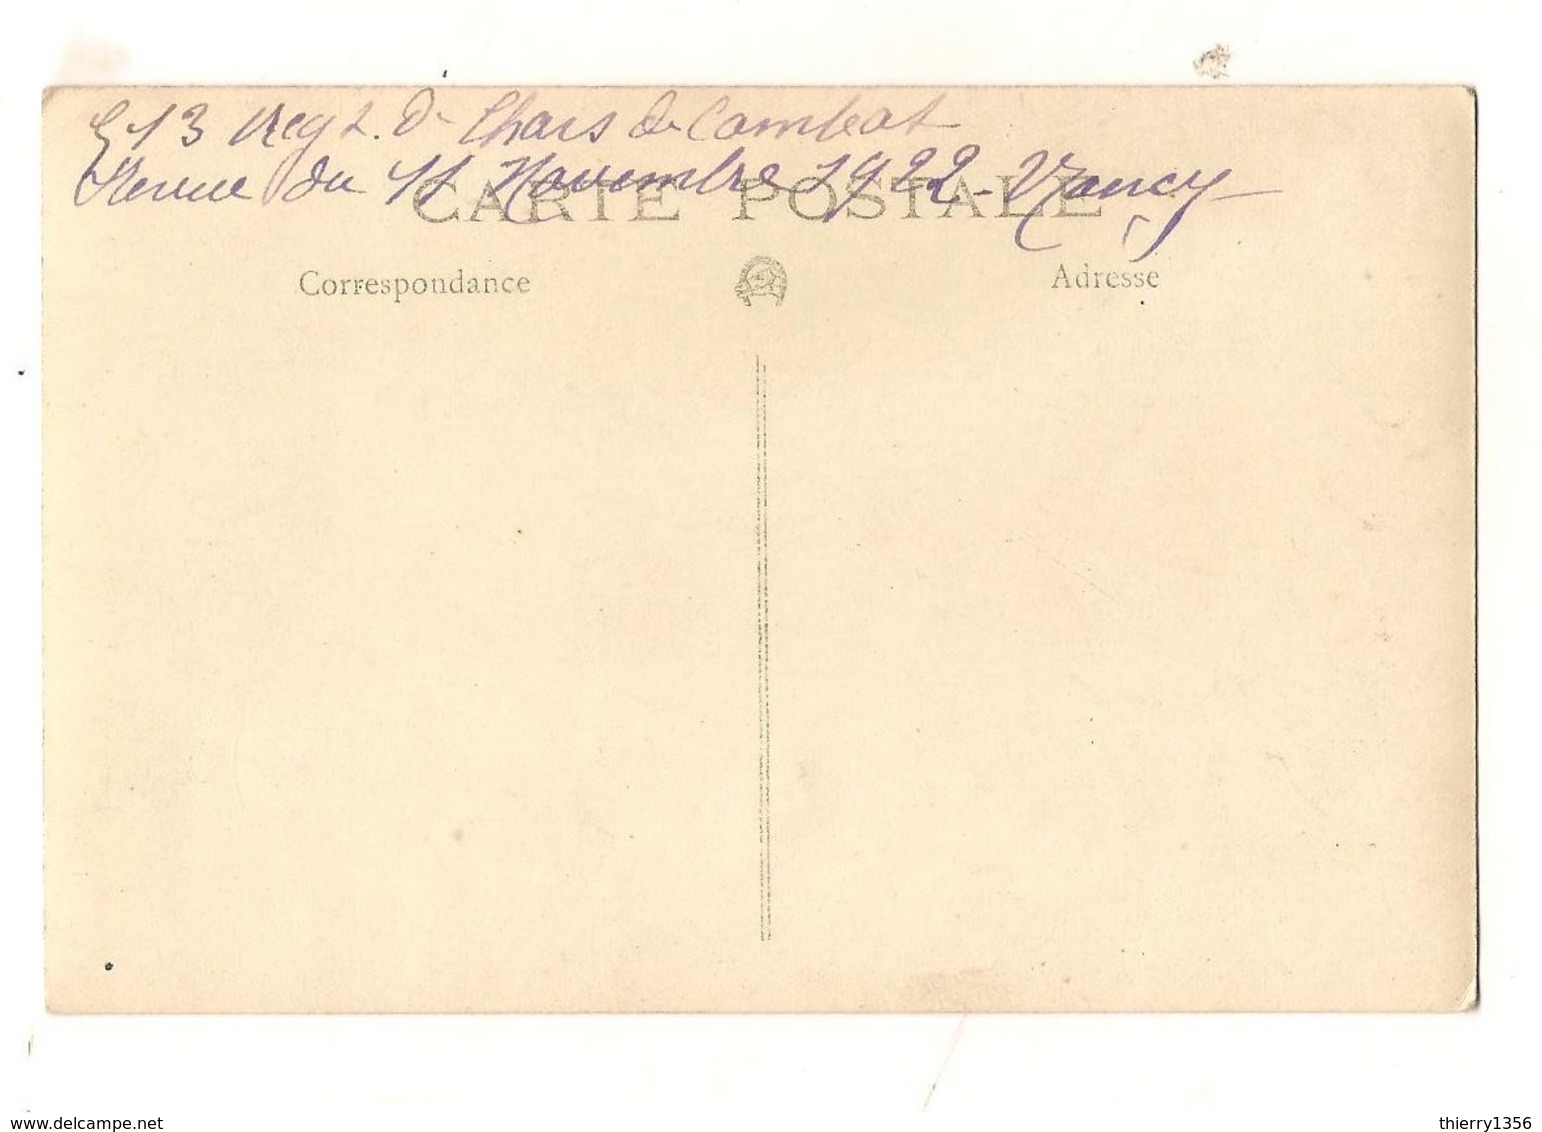 513 Regt. de Chars de Combat
Revue du 11 Novembre 1922 - Nancy
CARTE POSTALE
Correspondance
Adresse
www.delcampe.net
thierry1356